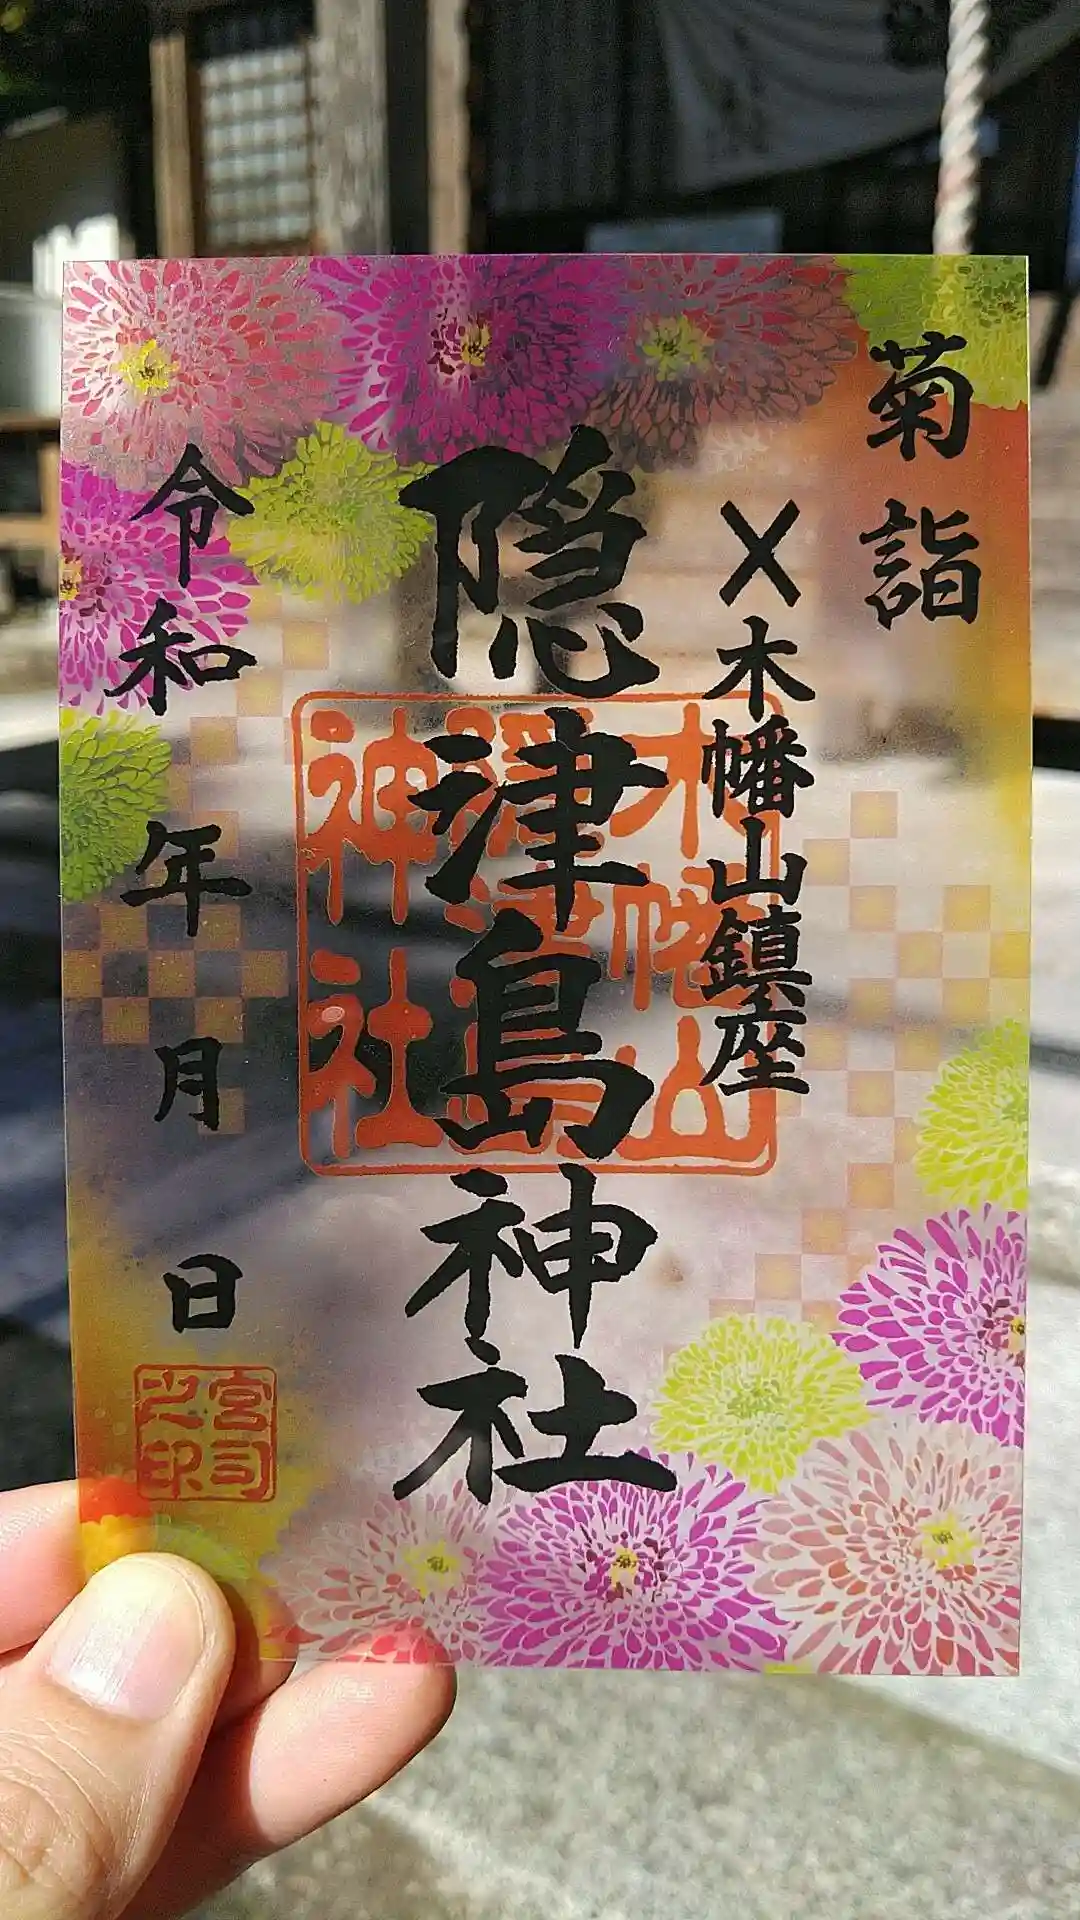 菊詣
〆木幡山鎮座
隠津島神社
木幡山
隠津島
神社
令和 年 月 日
宮司
之印